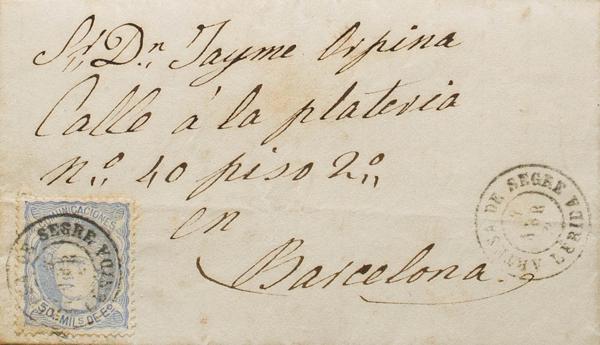 Sr. Dn. Jayme Orpina
Calle á la plateria
nº 40 piso 2º
en
Barcelona.
COMUNICACIONES
50 MILS DE Eº
SEGRE
DE SEGRE
LERIDA
ABR